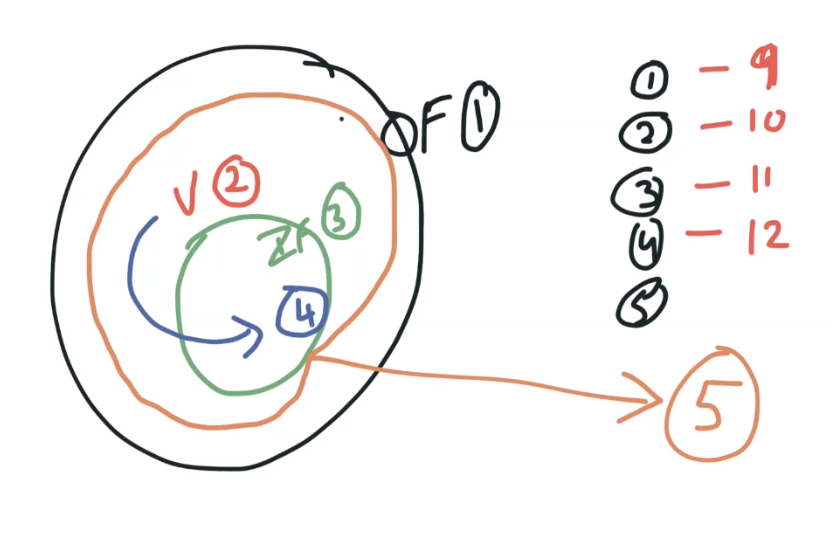 F ①
V ②
ZF ③
④
① - 9
② - 10
③ - 11
④ - 12
⑤
5